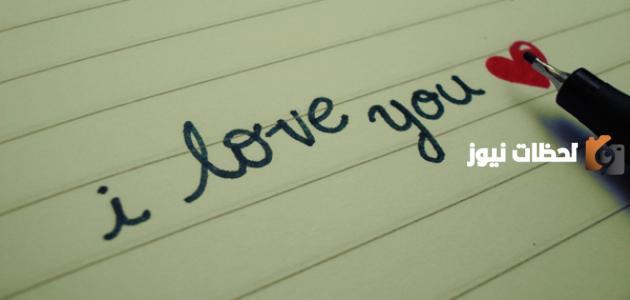 i love you
لحظات نيوز